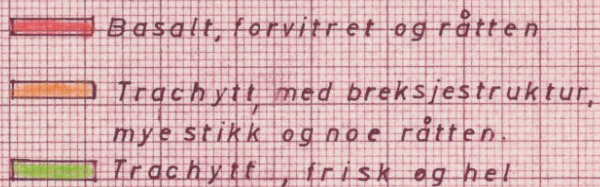 Basalt, forvitret og råtten
Trachytt, med breksjestruktur,
mye stikk og noe råtten.
Trachytt, frisk og hel